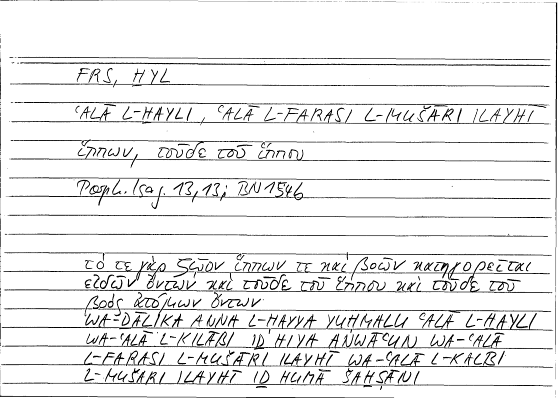 FRS, H̱YL
ʿALĀ L-H̱AYLI, ʿALĀ L-FARASI L-MUŠĀRI ILAYHI
ἵππων, τοῦδε τοῦ ἵππου
Porph. Isag. 13,13; BN 1546
τό τε γὰρ ζῷον ἵππων τε καὶ βοῶν κατηγορεῖται
εἰδῶν ὄντων καὶ τοῦδε τοῦ ἵππου καὶ τοῦδε τοῦ
βοὸς ἀτόμων ὄντων
WA-ḎĀLIKA ANNA L-ḤAYYA YUḤMALU ʿALĀ L-H̱AYLI
WA-ʿALĀ L-KILĀBI IḎ HIYA ANWĀʿUN WA-ʿALĀ
L-FARASI L-MUŠĀRI ILAYHI WA-ʿALĀ L-KALBI
L-MUŠĀRI ILAYHI IḎ HUMĀ ŠAH̱ṢĀNI